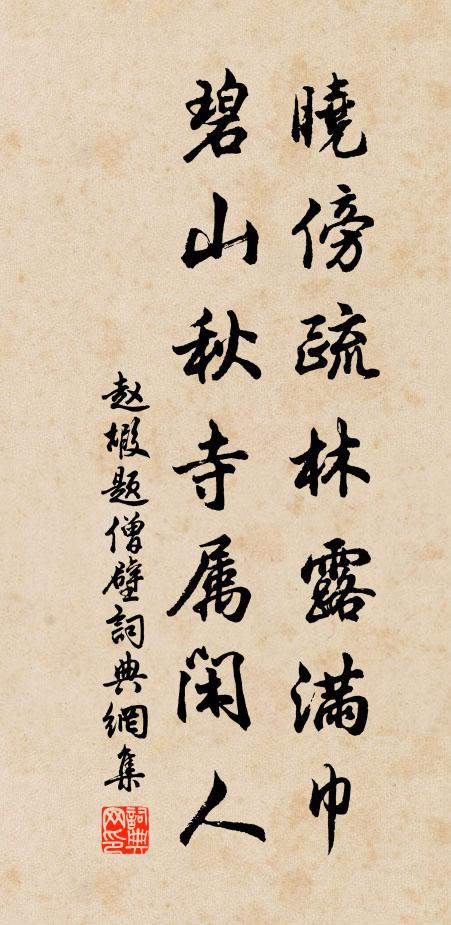 曉傍疏林露滿巾
碧山秋寺属閑人
赵嘏题僧壁詞典網集
詞典网印